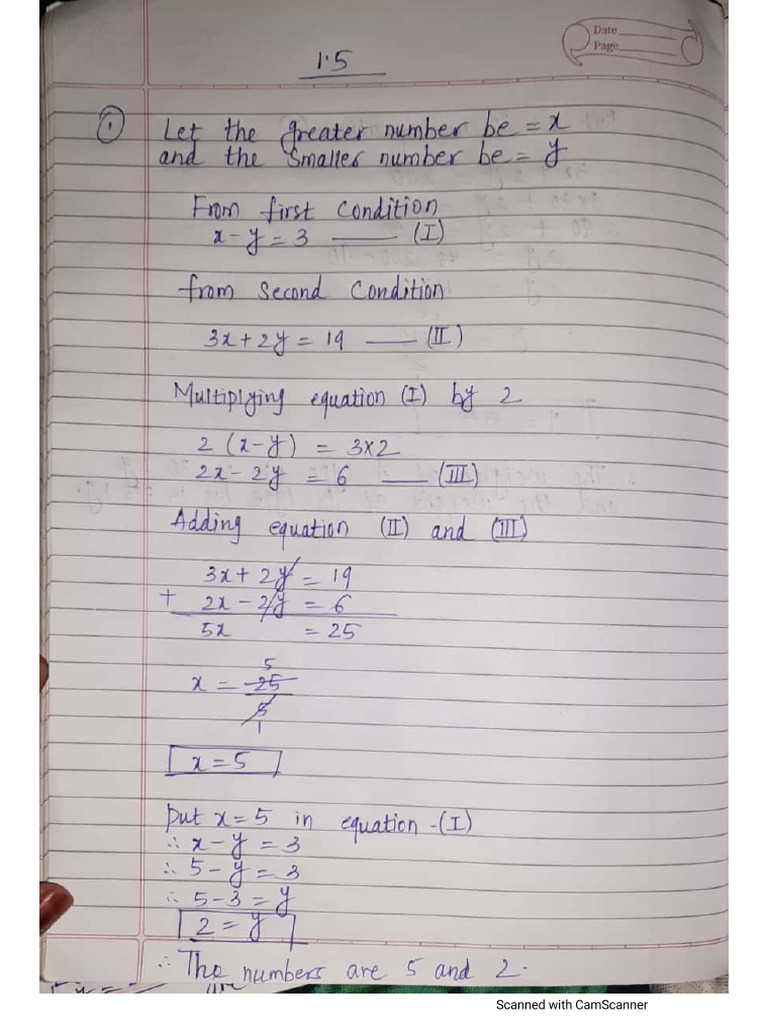 Date
Page
1.5
① Let the greater number be = x
and the smaller number be = y
From first condition
x - y = 3 —— (I)
from second condition
3x + 2y = 19 —— (II)
Multiplying equation (I) by 2
2 (x-y) = 3×2
2x - 2y = 6 —— (III)
Adding equation (II) and (III)
3x + 2y = 19
+ 2x - 2y = 6
5x = 25
5
x = 25
5
1
x = 5
put x = 5 in equation -(I)
∴ x - y = 3
∴ 5 - y = 3
∴ 5 - 3 = y
2 = y
∴ The numbers are 5 and 2.
Scanned with CamScanner